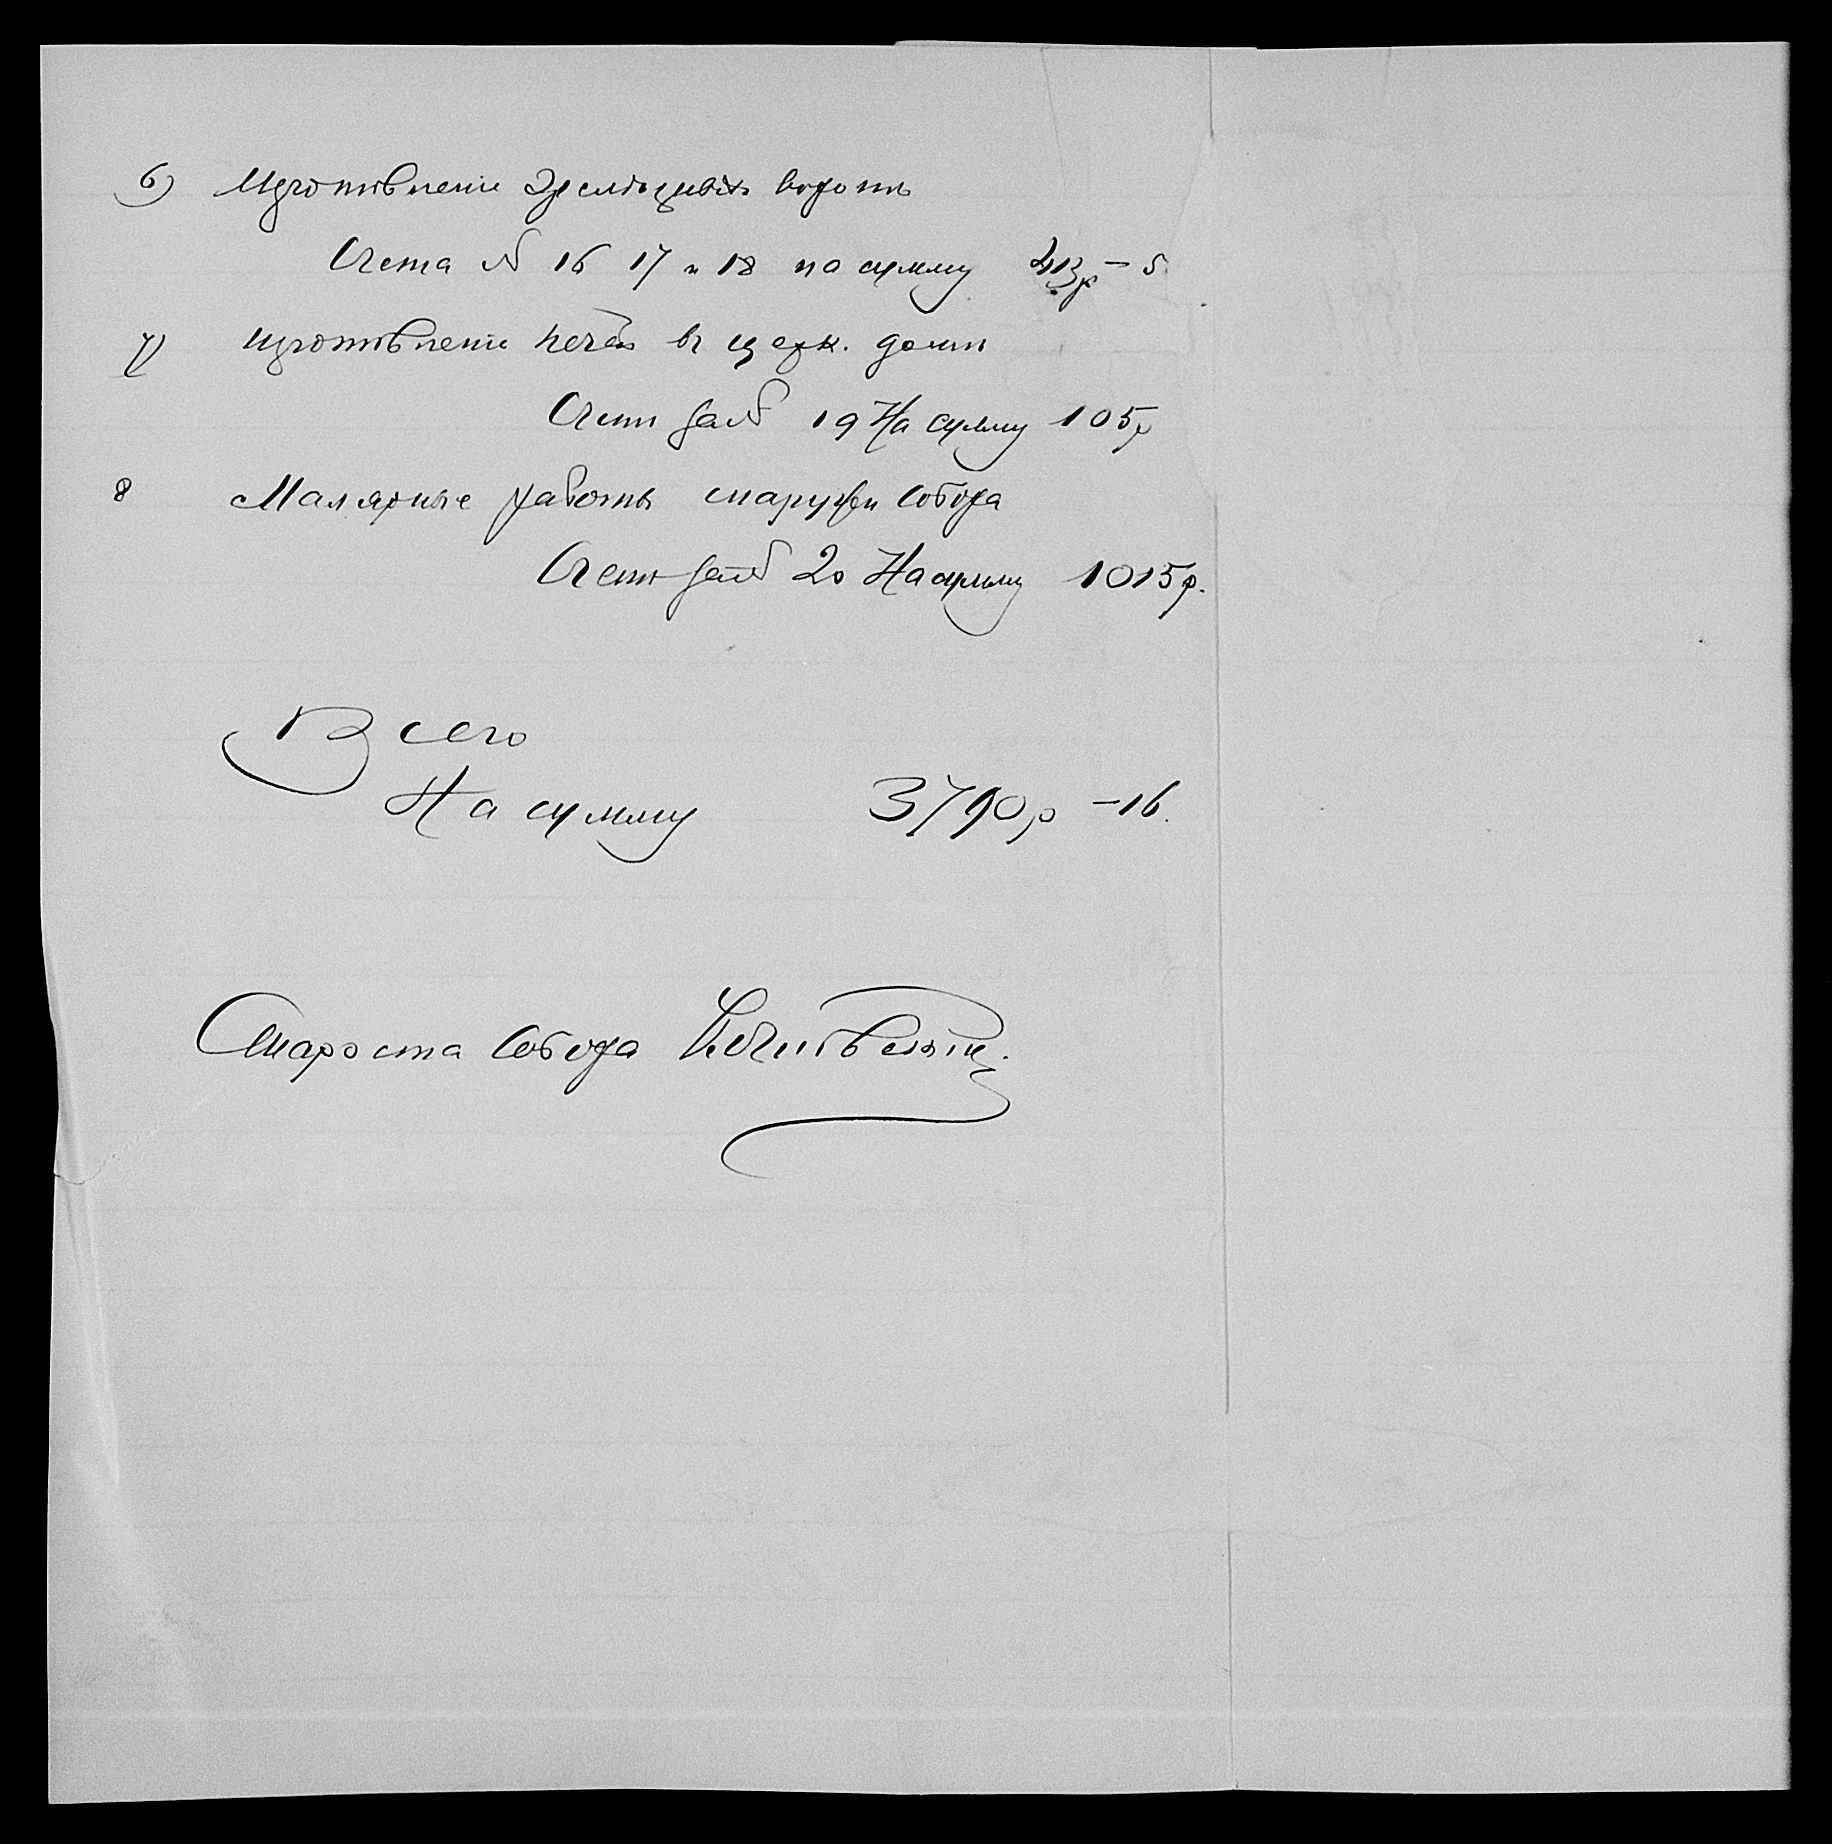 6) Изготовленіе желѣзныхъ воротъ
Счета № 16 17 и 18 на сумму 413р – 5
7) Изготовленіе печей въ церк. домѣ
Счетъ за № 19 На сумму 105р
8 Малярные работы снаружи Собора
Счетъ за № 20 На сумму 1015р.
Всего
На сумму 3790р – 16.
Староста Собора